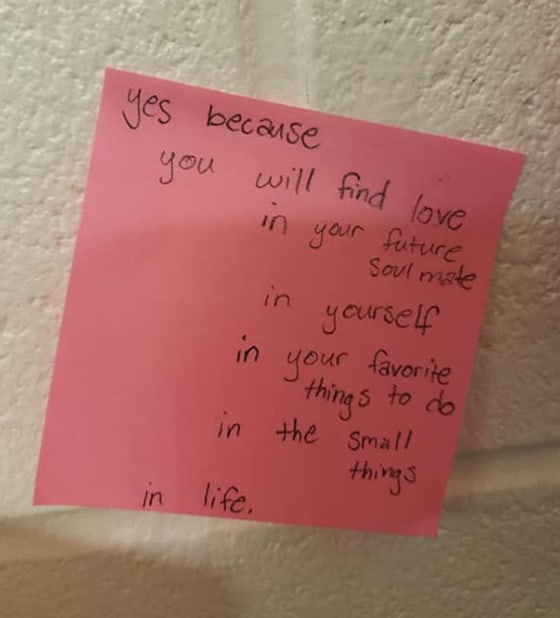 yes because
you will find love
in your future
soul mate
in yourself
in your favorite
things to do
in the small
things
in life.